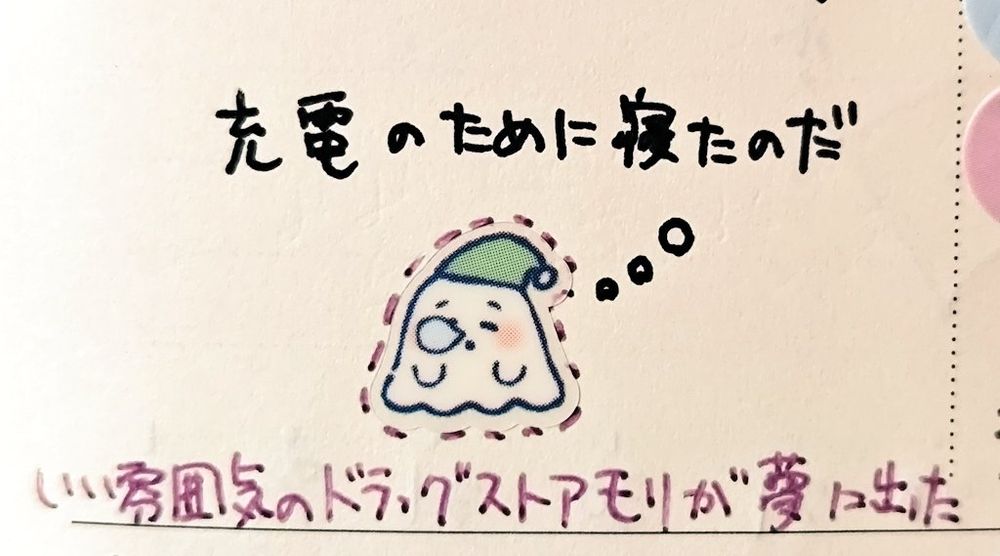 充電のために寝たのだ
いい雰囲気のドラッグストアモリが夢に出た